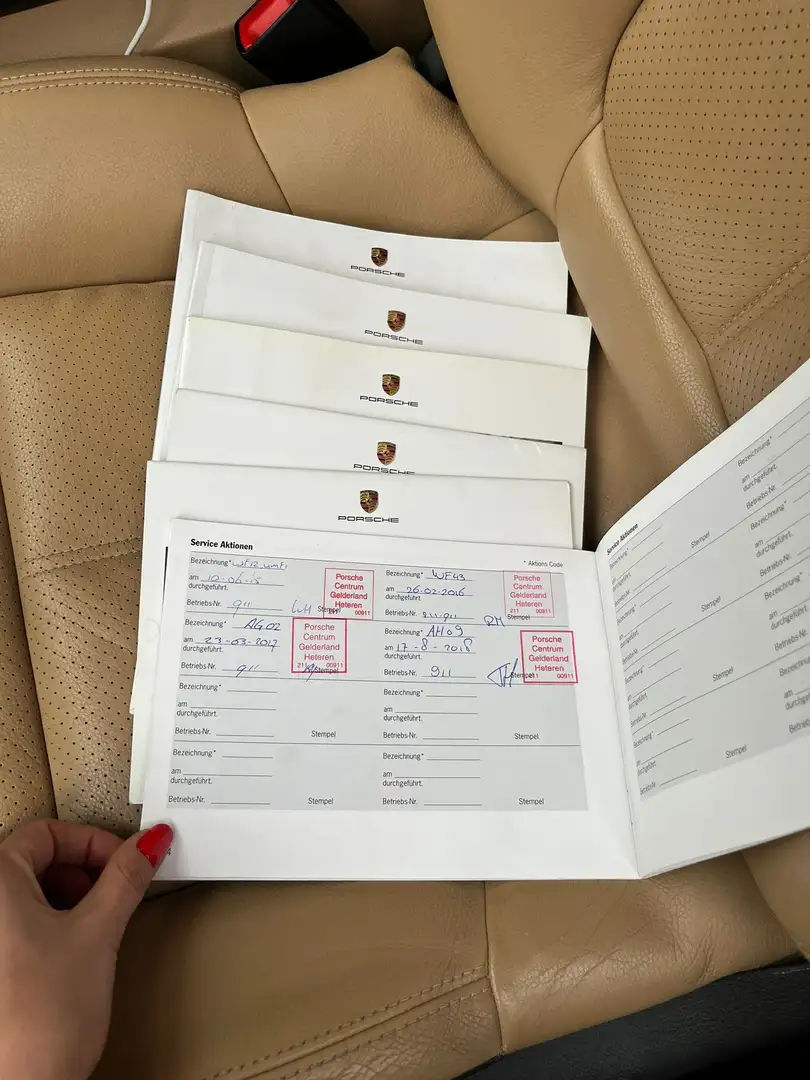 PORSCHE
PORSCHE
PORSCHE
PORSCHE
PORSCHE
Service Aktionen
* Aktions Code
Bezeichnung*
am 10-06-15
durchgeführt.
Betriebs-Nr. 911 Stempel
Porsche
Centrum
Gelderland
Heteren
211 00911
Bezeichnung* WF43
am 26-02-2016
durchgeführt.
Betriebs-Nr. 211-911 Stempel
Porsche
Centrum
Gelderland
Heteren
211 00911
Bezeichnung* AG02
am 23-03-2017
durchgeführt.
Betriebs-Nr. 911 Stempel
Porsche
Centrum
Gelderland
Heteren
211 00911
Bezeichnung* AH09
am 17-8-2018
durchgeführt.
Betriebs-Nr. 911 Stempel
Porsche
Centrum
Gelderland
Heteren
211 00911
Bezeichnung*
am
durchgeführt.
Betriebs-Nr. Stempel
Bezeichnung*
am
durchgeführt.
Betriebs-Nr. Stempel
Bezeichnung*
am
durchgeführt.
Betriebs-Nr. Stempel
Bezeichnung*
am
durchgeführt.
Betriebs-Nr. Stempel
4
Service Aktionen
Bezeichnung*
am
durchgeführt.
Betriebs-Nr. Stempel
Bezeichnung*
am
durchgeführt.
Betriebs-Nr. Stempel
Bezeichnung*
am
durchgeführt.
Betriebs-Nr. Stempel
Bezeichnung*
am
durchgeführt.
Betriebs-Nr. Stempel
Bezeichnung*
am
durchgeführt.
Betriebs-Nr.
Bezeichnung*
am
durchgeführt.
Betriebs-Nr.
Bezeichnung*
am
durchgeführt.
Betriebs-Nr.
Bezeichnung*
am
durchgeführt.
Betriebs-Nr.